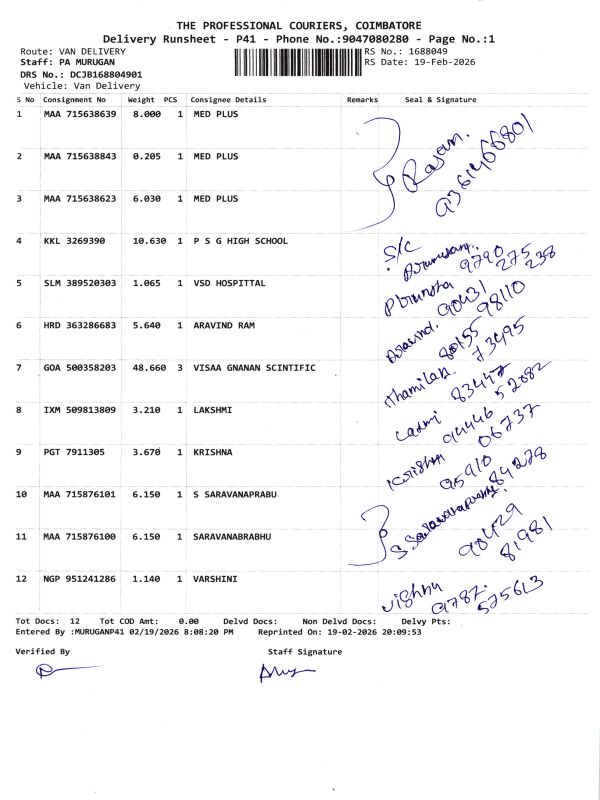 THE PROFESSIONAL COURIERS, COIMBATORE
Delivery Runsheet - P41 - Phone No.:9047080280 - Page No.:1
Route: VAN DELIVERY RS No.: 1688049
Staff: PA MURUGAN RS Date: 19-Feb-2026
DRS No.: DCJB168804901
Vehicle: Van Delivery
S No Consignment No Weight PCS Consignee Details Remarks Seal & Signature
1 MAA 715638639 8.000 1 MED PLUS
2 MAA 715638843 0.205 1 MED PLUS
Rajan.
9361466801
3 MAA 715638623 6.030 1 MED PLUS
4 KKL 3269390 10.630 1 P S G HIGH SCHOOL
S/C
9790 275 238
5 SLM 389520303 1.065 1 VSD HOSPITTAL
90431 98110
6 HRD 363286683 5.640 1 ARAVIND RAM
Aravind. 80155 73495
7 GOA 500358203 48.660 3 VISAA GNANAN SCINTIFIC
83447 52082
8 IXM 509813809 3.210 1 LAKSHMI
94446 06737
9 PGT 7911305 3.670 1 KRISHNA
95910 84278
10 MAA 715876101 6.150 1 S SARAVANAPRABU
11 MAA 715876100 6.150 1 SARAVANABRABHU
90429 81981
12 NGP 951241286 1.140 1 VARSHINI
Vishnu
9787. 575613
Tot Docs: 12 Tot COD Amt: 0.00 Delvd Docs: Non Delvd Docs: Delvy Pts:
Entered By :MURUGANP41 02/19/2026 8:08:20 PM Reprinted On: 19-02-2026 20:09:53
Verified By Staff Signature